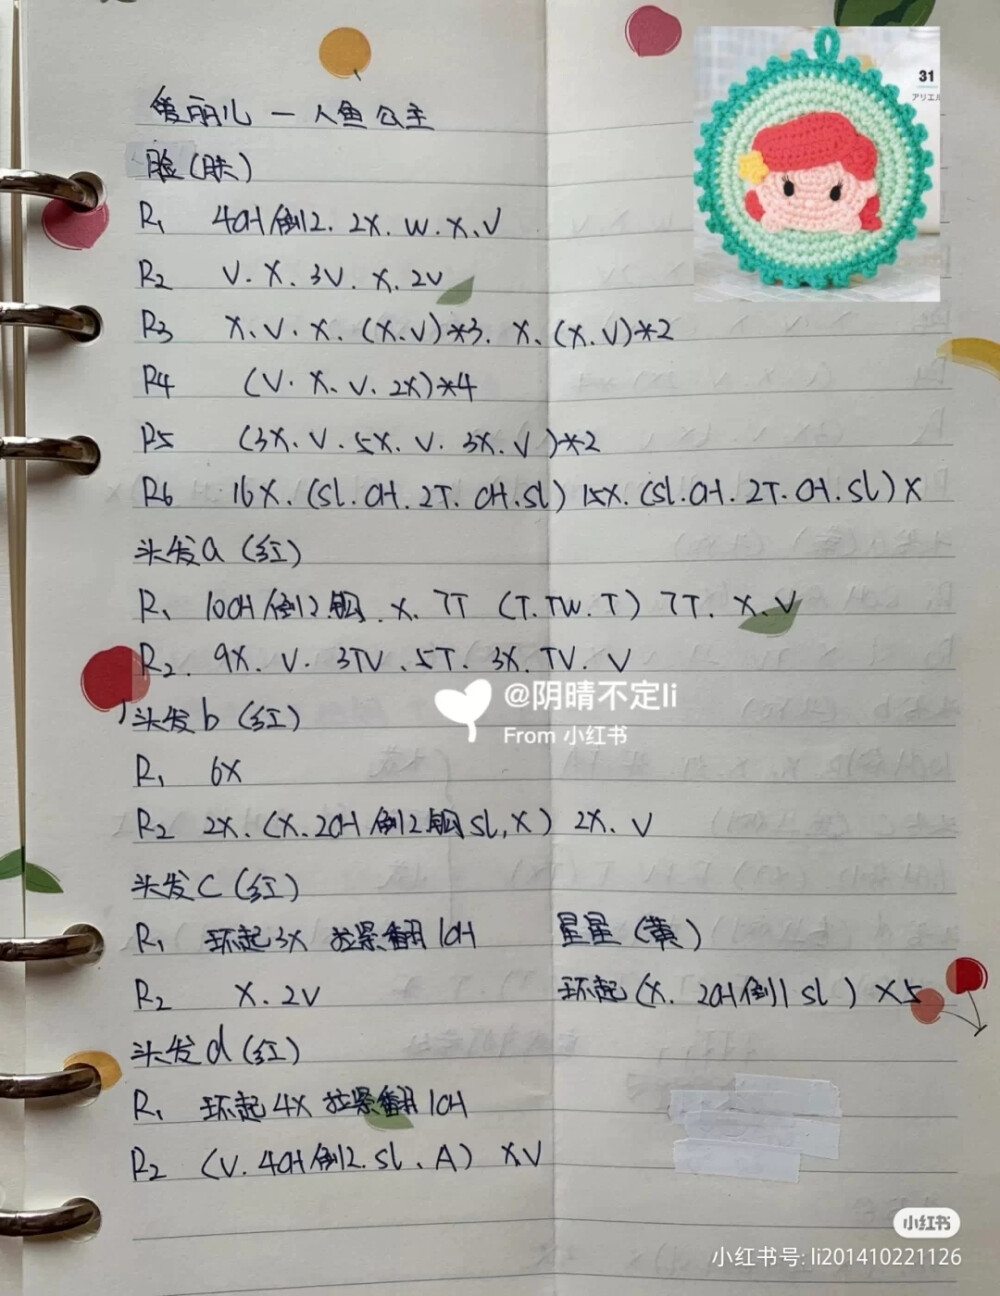 31
アリエル
爱丽儿 — 人鱼公主
脸(肤)
R1 4CH倒2. 2X. W. X. V
R2 V. X. 3V. X. 2V
R3 X. V. X. (X. V)*3. X. (X. V)*2
R4 (V. X. V. 2X)*4
R5 (3X. V. 5X. V. 3X. V)*2
R6 16X. (SL. CH. 2T. CH. SL) 15X. (SL. CH. 2T. CH. SL) X
头发a(红)
R1 10CH倒2钩. X. 7T (T. TW. T) 7T. X. V
R2. 9X. V. 3TV. 5T. 3X. TV. V
@阴晴不定li
From 小红书
头发b(红)
R1 6X
R2 2X. (X. 2CH倒2钩SL, X) 2X. V
头发C(红)
R1 环起3X 拉紧翻1CH
R2 X. 2V
星星(黄)
环起(X. 2CH倒1 SL) X5
头发d(红)
R1 环起4X 拉紧翻1CH
R2 (V. 4CH倒2. SL. A) X. V
小红书
小红书号: li201410221126